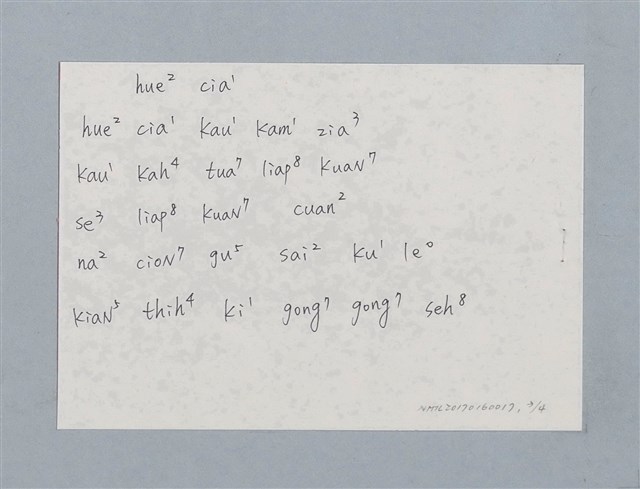 hue² cia¹
hue² cia¹ kau¹ kam¹ zia³
kau¹ kah⁴ tua⁷ liap⁸ kuaN⁷
se³ liap⁸ kuaN⁷ cuan²
na² cioN⁷ gu⁵ sai² ku¹ le⁰
kiaN⁵ thih⁴ ki¹ gong⁷ gong⁷ seh⁸
NMTL20170160017, 3/4